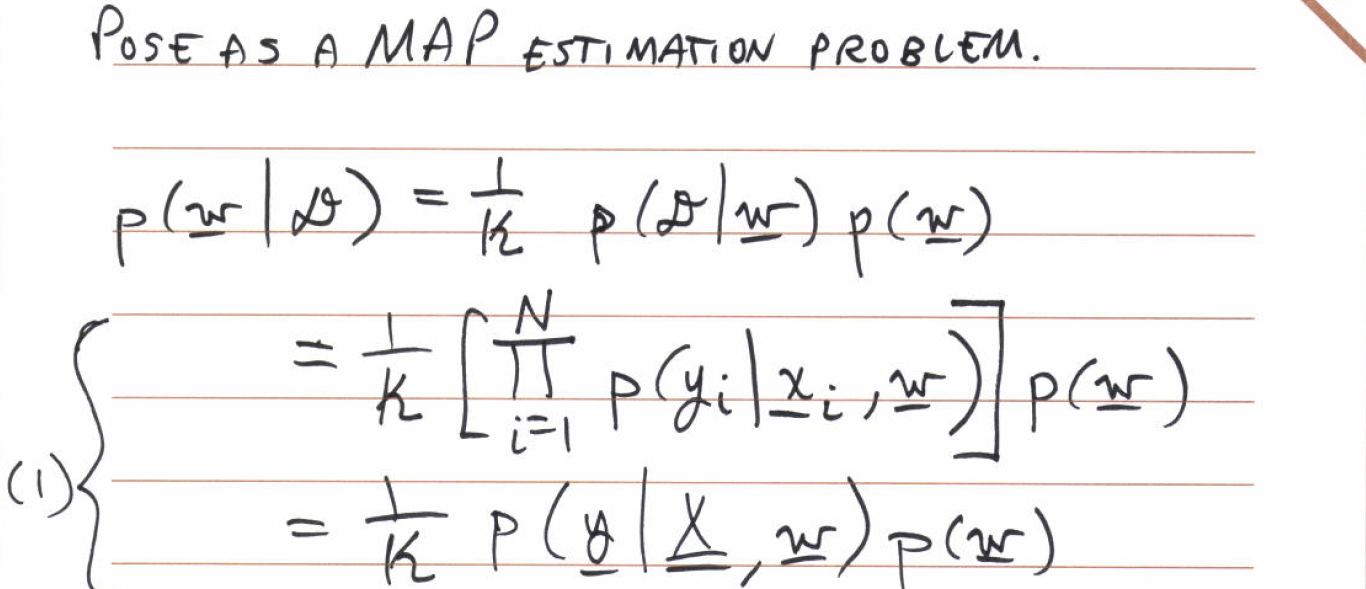 POSE AS A MAP ESTIMATION PROBLEM.
p(w | 𝒟) = 1/K p(𝒟 | w) p(w)
= 1/K [ ∏_{i=1}^{N} p(y_i | x_i, w) ] p(w)
(1) { = 1/K p(y | X, w) p(w)